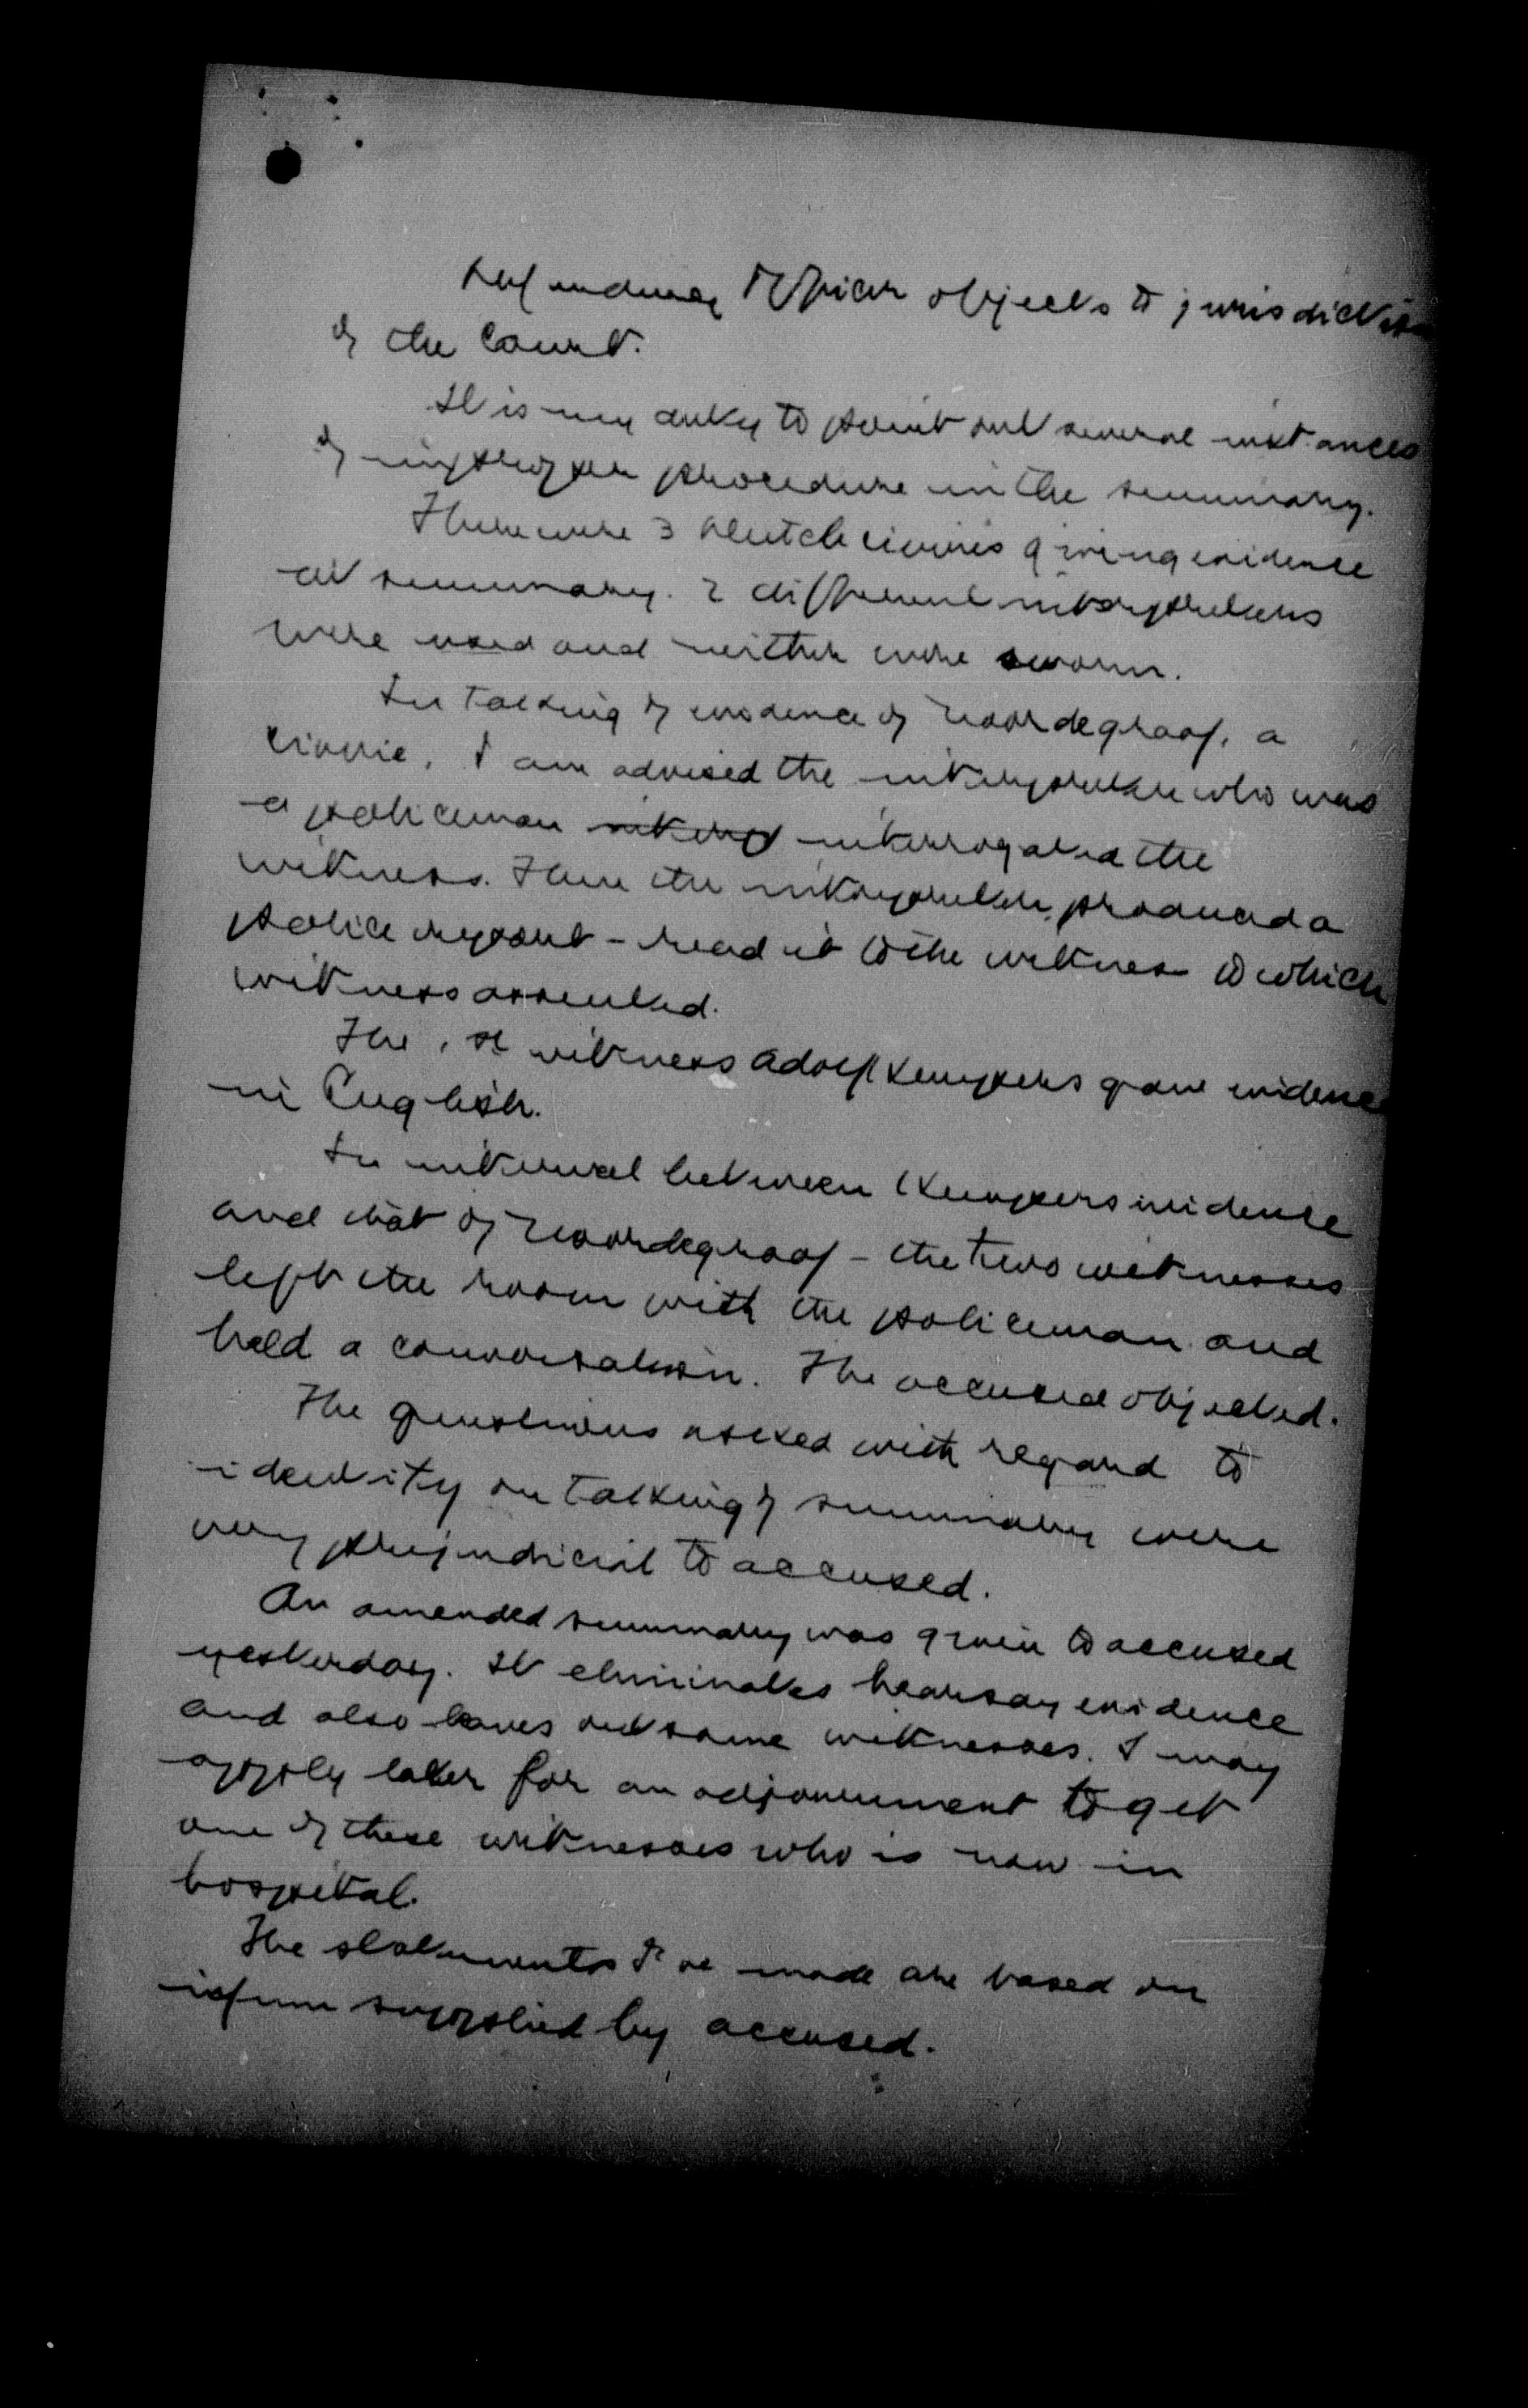 Defending Officer objects to jurisdiction
of the Court.
It is my duty to point out several instances
of improper procedure in the summary.
There were 3 Dutch civvies giving evidence
at summary. 2 different interpreters
were used and neither were sworn.
In taking of evidence of Noordegraaf, a
civvie, I am advised the interpreter who was
a policeman interp interrogated the
witness. Then the interpreter produced a
police report - read it to the witness to which
witness assented.
The 1st witness Adolf Kuypers gave evidence
in English.
In interval between Kuypers evidence
and that of Noordegraaf - the two witnesses
left the room with the policeman and
held a conversation. The accused objected.
The questions asked with regard to
identity on taking of summary were
very prejudicial to accused.
An amended summary was given to accused
yesterday. It eliminates hearsay evidence
and also leaves out some witnesses. I may
apply later for an adjournment to get
one of these witnesses who is now in
hospital.
The statements I've made are based on
infmn supplied by accused.